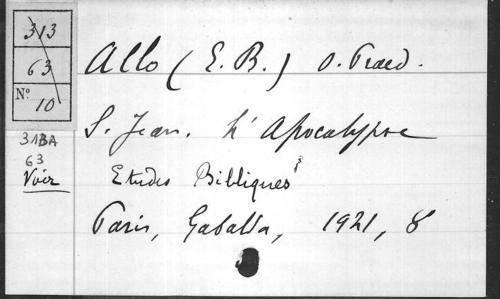 313
63
Nº 10
313A
63
Voir
Allo (E. B.) O. Praed.
S. Jean. L'Apocalypse
Etudes Bibliques
Paris, Gabalda, 1921, 8